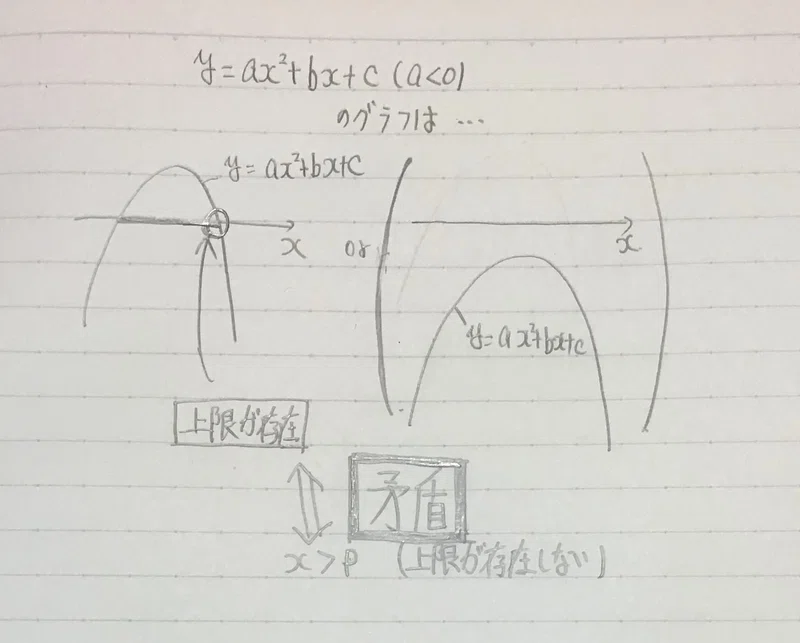 y=ax²+bx+c (a<0)
のグラフは …
y=ax²+bx+c
x
or
x
y=ax²+bx+c
上限が存在
矛盾
x>p (上限が存在しない)